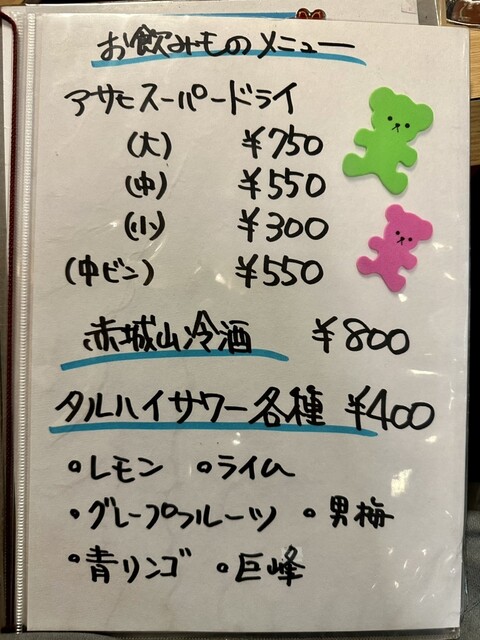 お飲みものメニュー
アサヒスーパードライ
(大) ¥750
(中) ¥550
(小) ¥300
(中ビン) ¥550
赤城山冷酒 ¥800
タルハイサワー各種 ¥400
・レモン ・ライム
・グレープフルーツ ・男梅
・青リンゴ ・巨峰